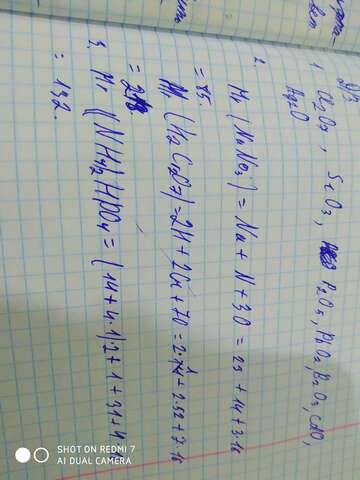 Д/З
1. Cl₂O₇, S₂O₃, P₂O₅, PbO₂, B₂O₃, CdO,
Ag₂O
2. Mr (NaNO₃) = Na + N + 3O = 23 + 14 + 3·16
= 85.
Mr (K₂Cr₂O₇) = 2K + 2Cr + 7O = 2· + 2·52 + 7·16
3. Mr ((NH₄)₂HPO₄ = (14+4·1)2 + 1 + 31 + 4
= 132.
SHOT ON REDMI 7
AI DUAL CAMERA